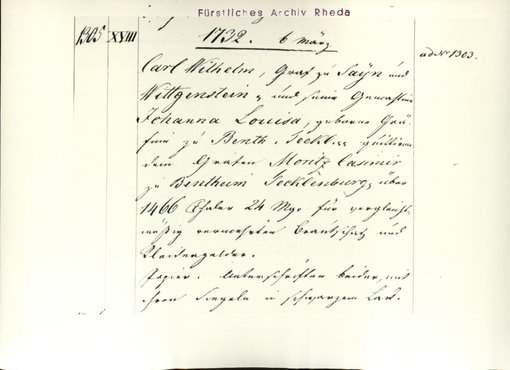 Fürstliches Archiv Rheda
1305 XVIII 1732. 6 März
ad No 1303.
Carl Wilhelm, Graf zu Sayn und
Wittgenstein, und seine Gemahlin
Johanna Louisa, geborne Grä-
finn zu Benth. Teckl. quittiren
dem Grafen Moritz Casimir
zu Bentheim Tecklenburg, über
1466 Thaler 24 Mgr für vergleichs-
mäßig vermehrten Brautschatz und
Kleidergelder.
Papier. Unterschriften beider, mit
ihren Siegeln in schwarzem Lack.